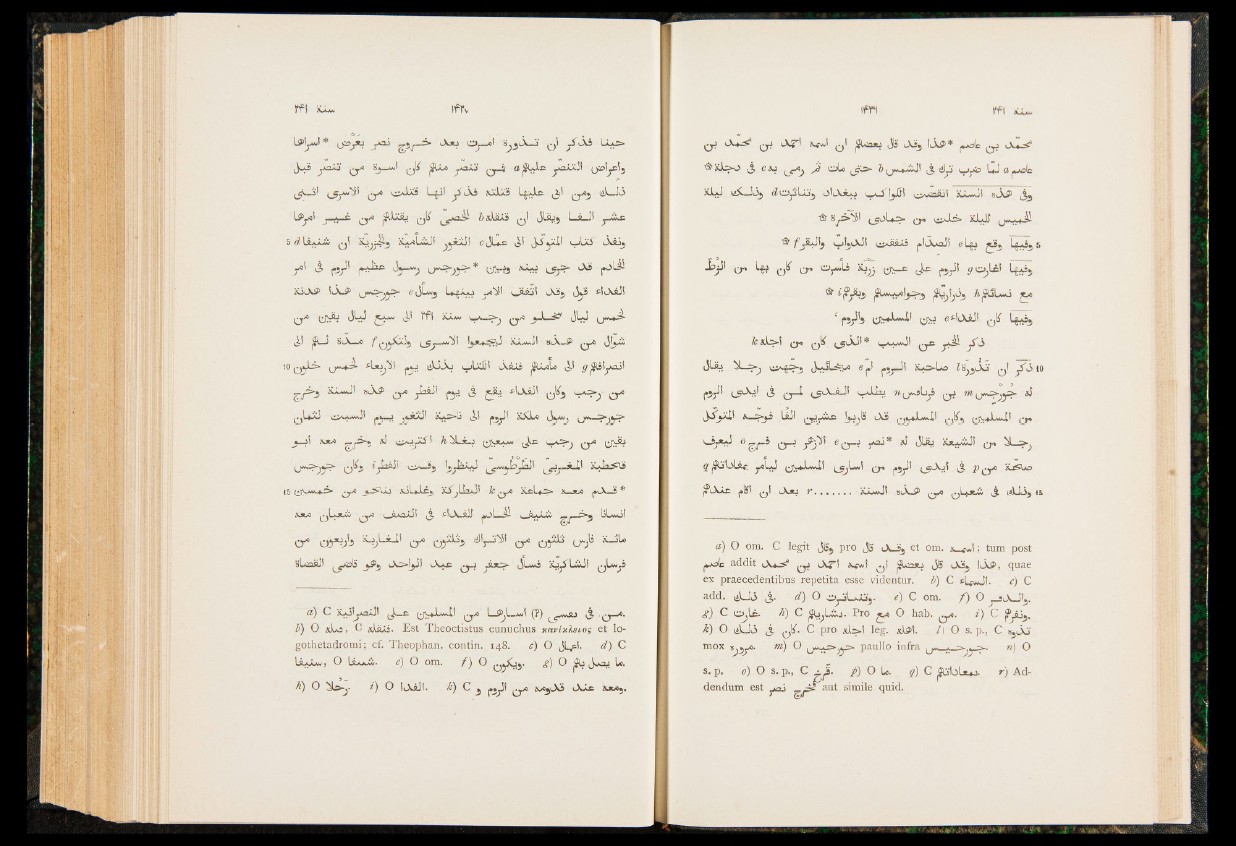 سنة ٢٤١ ١٤٢٦
محمد بن عاصم *هذا وقد قال بعضهم ان اسمه احمد بن محمد بن
عاصم a لما ضرب ترك في الشمس b حتى مات ثم رمى به c في دجلة ۞
وفي هذه السنة انقضت الكواكب ببغداد وتناثرت d وذلك ليلة
الخميس لليلة خلت من جمادى الآخرة ۞
5 وفيها وقع بها e الصدام فنفقت الدواب والبقر f ۞
وفيها اغارت g الروم على عين زربة فاسرت من كان بها من الزط
مع نسائهم h وذراريهم وجواميسهم وبقرهم i ۞
وفيها كان الفداء e بين المسلمين والروم،
ذكر الخبر عن السبب *الذى كان من اجله k
10 ذكر ان تذورة l صاحبة الروم ام e ميخائيل وجهت رجلا يقال
له جورجس m بن قريافس n يطلب الفداء لمن في ايدى الروم
من المسلمين وكان المسلمون قد قاربوا عشرين الفا فوجه المتوكل
رجلا من الشيعة يقال له *نصر بن e الازهر بن فرج o ليعرف
صحة من p في ايدى الروم من اسارى المسلمين ليأمر بمفاداتهم q
15 وذلك i في شعبان من هذه السنة ....... r بعد ان اقام عندهم
a) O om. C legit وقال pro وقد قال et om. اسمه; tum post
عاصم addit هذا وقد قال بعضهم ان اسمه احمد بن محمد, quae
ex praecedentibus repetita esse videntur. b) C السماء. c) C
add. في ذلك. d) O وتناثرت. e) C om. f) O والدفر.
g) C غارت. h) C بنسائهم. Pro مع O hab. من. i) C ونفرهم.
k) O كان في ذلك. C pro اجله leg. اهله. l) O s. p., C تدوره
mox مزوره. m) O حرحيس paullo infra جرجيس. n) O
s. p. o) O s. p., C فرج. p) O ما. q) C بمعاداتهم r) Ad-
dendum est فخرج نصر aut simile quid.
سنة ٢٤١ ١٤٢٧
حينا فذكر ان تذورة امرت بعد خروج نصر بعرض *اسراها
واعراض التنصر عليهم a فمن تنصر منهم كان اسوة من تنصر قبل
ذلك ومن ابى عليها قتلته فذكر انها قتلت من الاسرى اثنى
عشر الفا ويقال ان قنقله b الخصى كان يقتلهم من غير امرها
5 ونفذ كتاب المتوكل الى عمال c الثغور الشأمية والجزرية ان شنيفا d
الخادم قد جرى بينه وبين *جورجس رسول عظيم الروم في امر
الفداء قول وقد اتفق الامر بينهما وسأل e جورجس هذا هدنة
لخمس ليال تخلو من رجب سنة ٢٤١ الى سبع ليال بقين من
شوال من هذه السنة ليجمعوا الاسرى ولتكون f مدة لهم الى
10 انصرافهم g الى مأمنهم فنفذ الكتاب بذلك يوم الاربعاء لخمس خلون
من رجب وكان الفداء يقع في يوم الفطر من هذه السنة وخرج
جورجس رسول ملكة الروم الى ناحية الثغور يوم السبت لثمان
بقين من رجب على سبعين بغلا h اكتريت له وخرج معه ابو
قحطبة المغربى الطرطوسى لينظروا وقت الفطر i وكان جورجس
15 *قدم معه جماعة من k البطارقة وغلمانه بنحو من خمسين
انسانا وخرج شنيف الخادم للفداء في النصف من شعبان معه
مائة فارس ثلثون من الاتراك وثلثون من المغاربة واربعون من
فرسان الشاكرية فسأل جعفر بن عبد الواحد وهو قاضى القضاة
a) C من في (?) اساراها من المسلمين على النصرانية.
b) O, C. Est Theoctistus eunuchus κανίκλειος et lo-
gothetadromi; cf. Theophan. contin. 148. c) O اعمال. d) C
, O. e) O om. f) O ويكون. g) O ما يصل بهم
h) O رحلا. i) O الفدا. k) C ومعه عند قدومه من الروم و